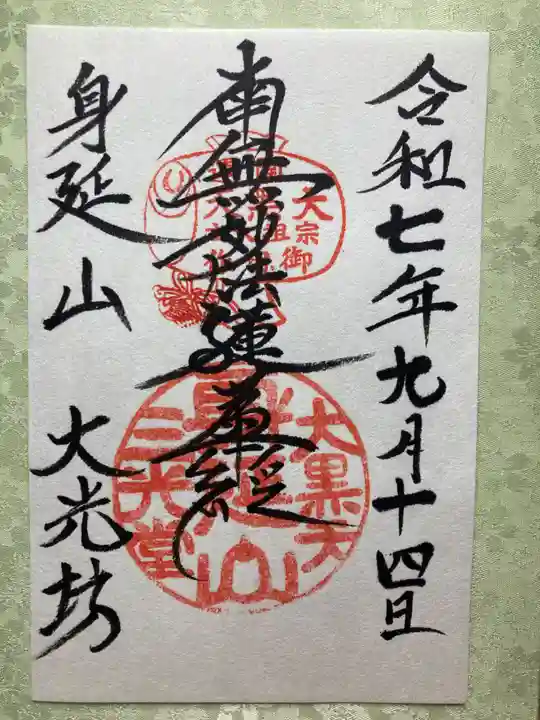 令和七年九月十四日
南無妙法蓮華経
身延山 大光坊
大黒天
身延山
三光堂